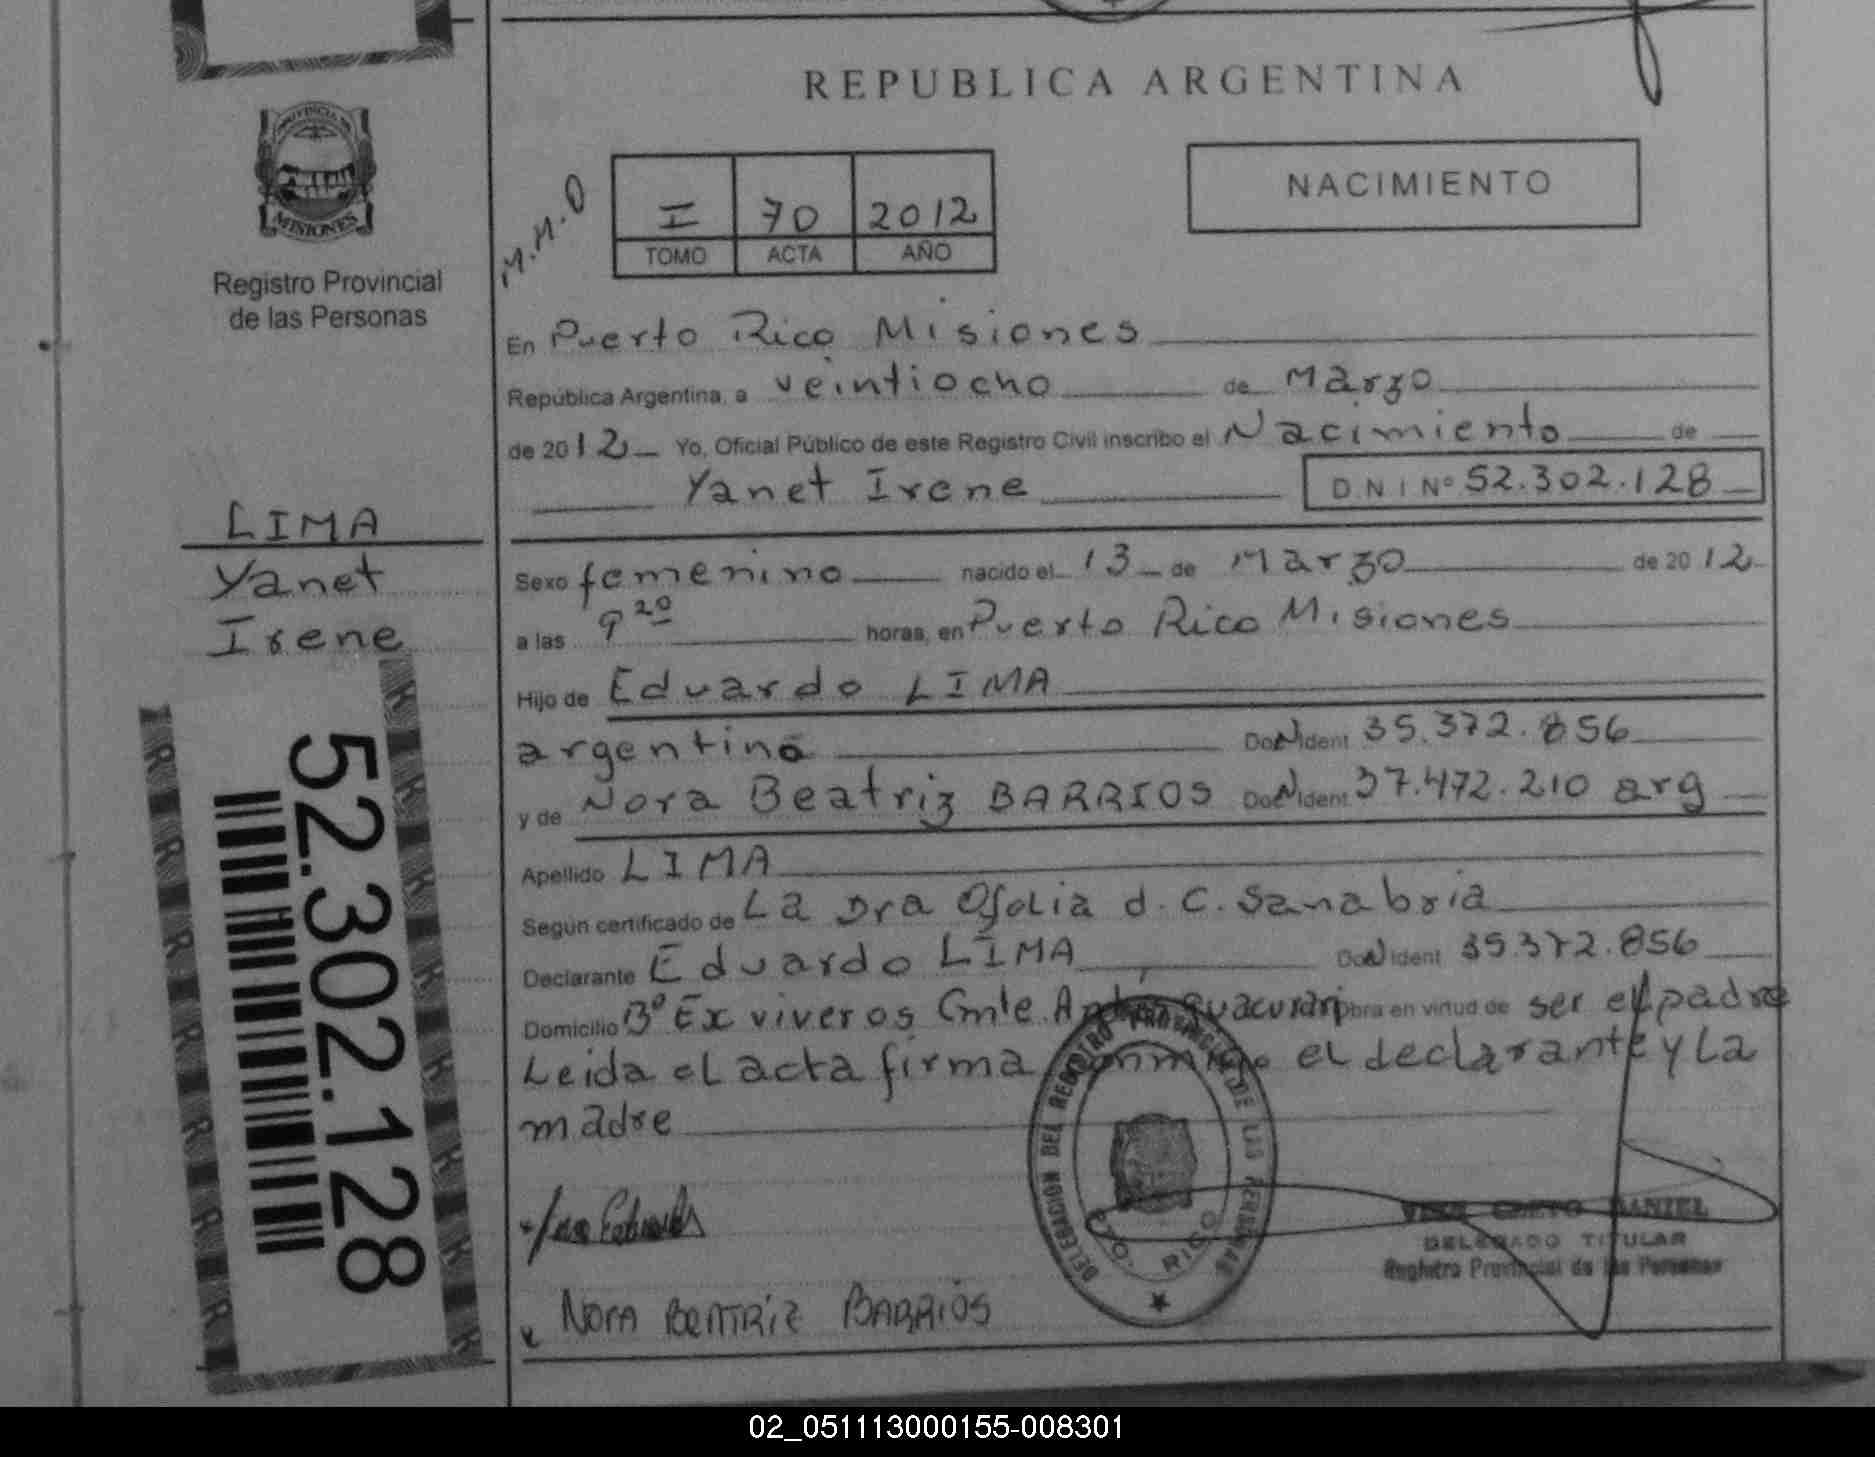 REPUBLICA ARGENTINA
PROVINCIA DE
MISIONES
Registro Provincial
de las Personas
M.M.O
I 70 2012
TOMO ACTA AÑO
NACIMIENTO
En Puerto Rico Misiones
República Argentina, a veintiocho de Marzo
de 2012 Yo, Oficial Público de este Registro Civil inscribo el Nacimiento de
Yanet Irene D.N.I Nº 52.302.128
LIMA
Yanet
Irene
Sexo femenino nacido el 13 de Marzo de 2012
a las 9 20 horas, en Puerto Rico Misiones
Hijo de Eduardo LIMA
argentino Doc Ident 35.372.856
y de Nora Beatriz BARRIOS Doc Ident 37.472.210 arg
Apellido LIMA
Según certificado de La Dra d. C. Sanabria
Declarante Eduardo LIMA Doc Ident 35.372.856
Domicilio Bº Ex viveros Cmte. Andrés guacurari Obra en virtud de ser el padre
Leida el acta firma conmigo el declarante y La
madre
52.302.128
DELEGACION DEL REGISTRO PROVINCIAL DE LAS PERSONAS
PTO. RICO
DANIEL
DELEGADO TITULAR
Registro Provincial de las Personas
NORA BEATRIZ BARRIOS
02_051113000155-008301